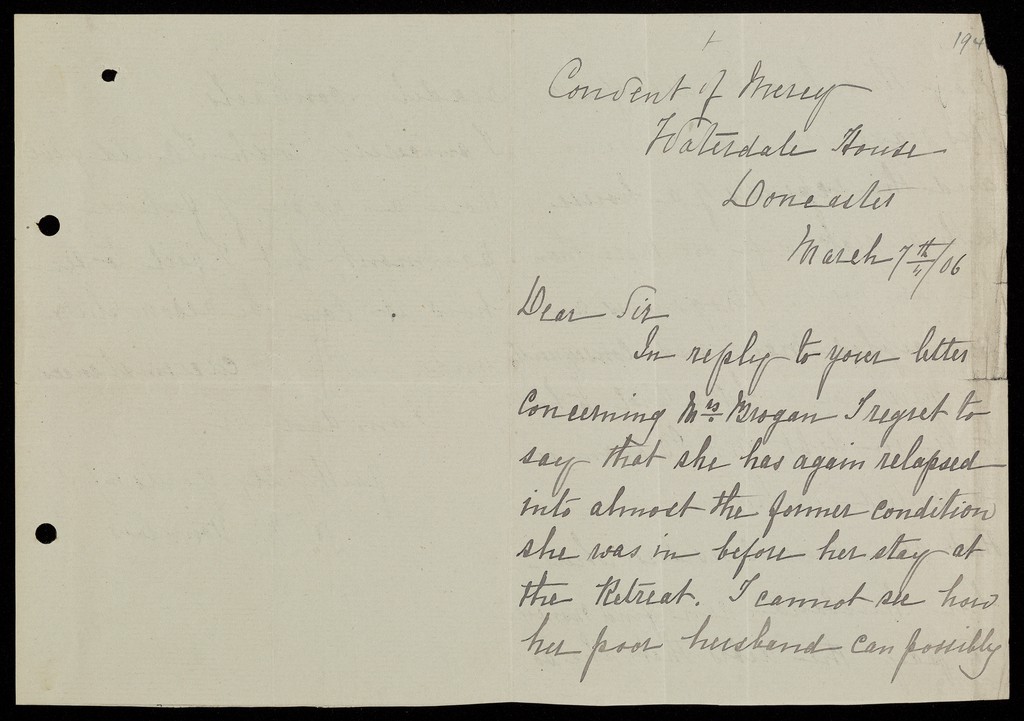 194
Convent of Mercy
Waterdale House
Doncaster
March 7th/06
Dear Sir
In reply to your letter
concerning Mrs Brogan I regret to
say that she has again relapsed
into almost the former condition
she was in before her stay at
the Retreat. I cannot see how
her poor husband can possibly